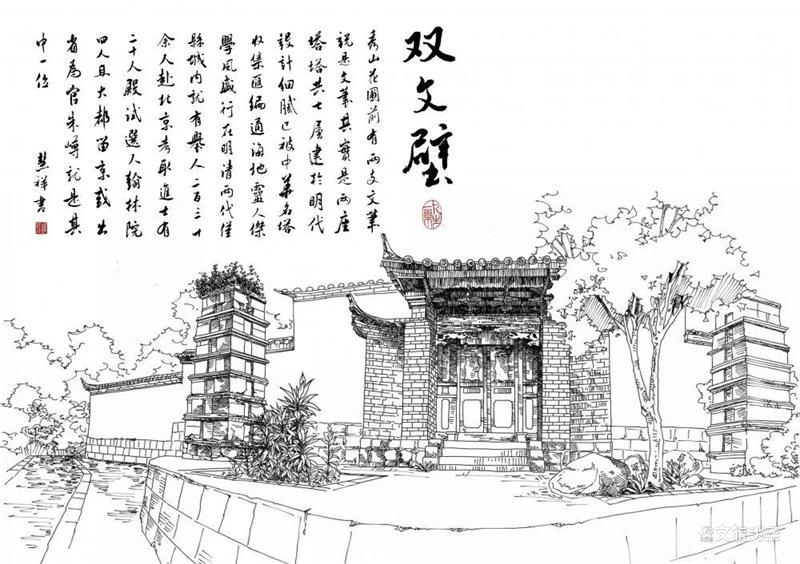 双文壁
秀山花圃前有两支文筆
说是文筆其實是两座
塔塔共七層建於明代
設計细腻已被中華名塔
收集匯编通海地靈人傑
學風盛行在明清两代僅
縣城内就有舉人二百三十
余人赴北京考取進士有
二十人殿試選入翰林院
四人且大都留京或出
省為官朱嶟就是其
中一位
慧祥書